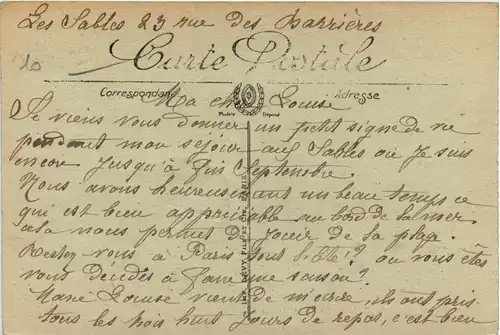 Les Sables 23 rue des Barrières
Carte Postale
Correspondance
Adresse
Modèle Déposé
Ma chère Louise
Je viens vous donner un petit signe de vie
pendant mon séjour aux Sables où je suis
encore jusqu'à fin Septembre.
Nous avons heureusement un beau temps ce
qui est bien appréciable au bord de la mer.
cela nous permet de jouir de la plage.
Restez vous à Paris tout l'Eté? ou vous êtes
vous décidés à faire une saison?
Marie Louise vient de m'écrire, ils ont pris
tous les trois huit jours de repos, c'est bien
LÉVY FILS ET CIE, PARIS